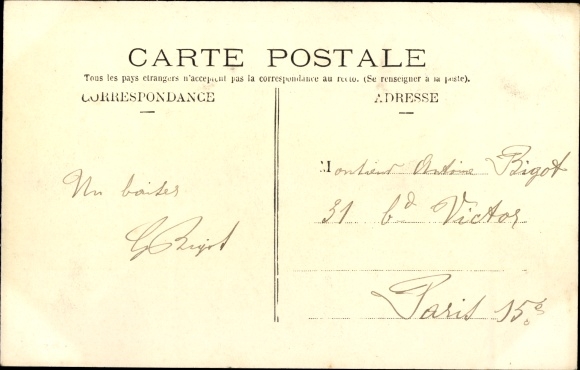 CARTE POSTALE
Tous les pays étrangers n'acceptent pas la correspondance au recto. (Se renseigner à la poste).
CORRESPONDANCE
ADRESSE
Un baiser
G Bigot
Monsieur Bigot
31 bd Victor
Paris 15e